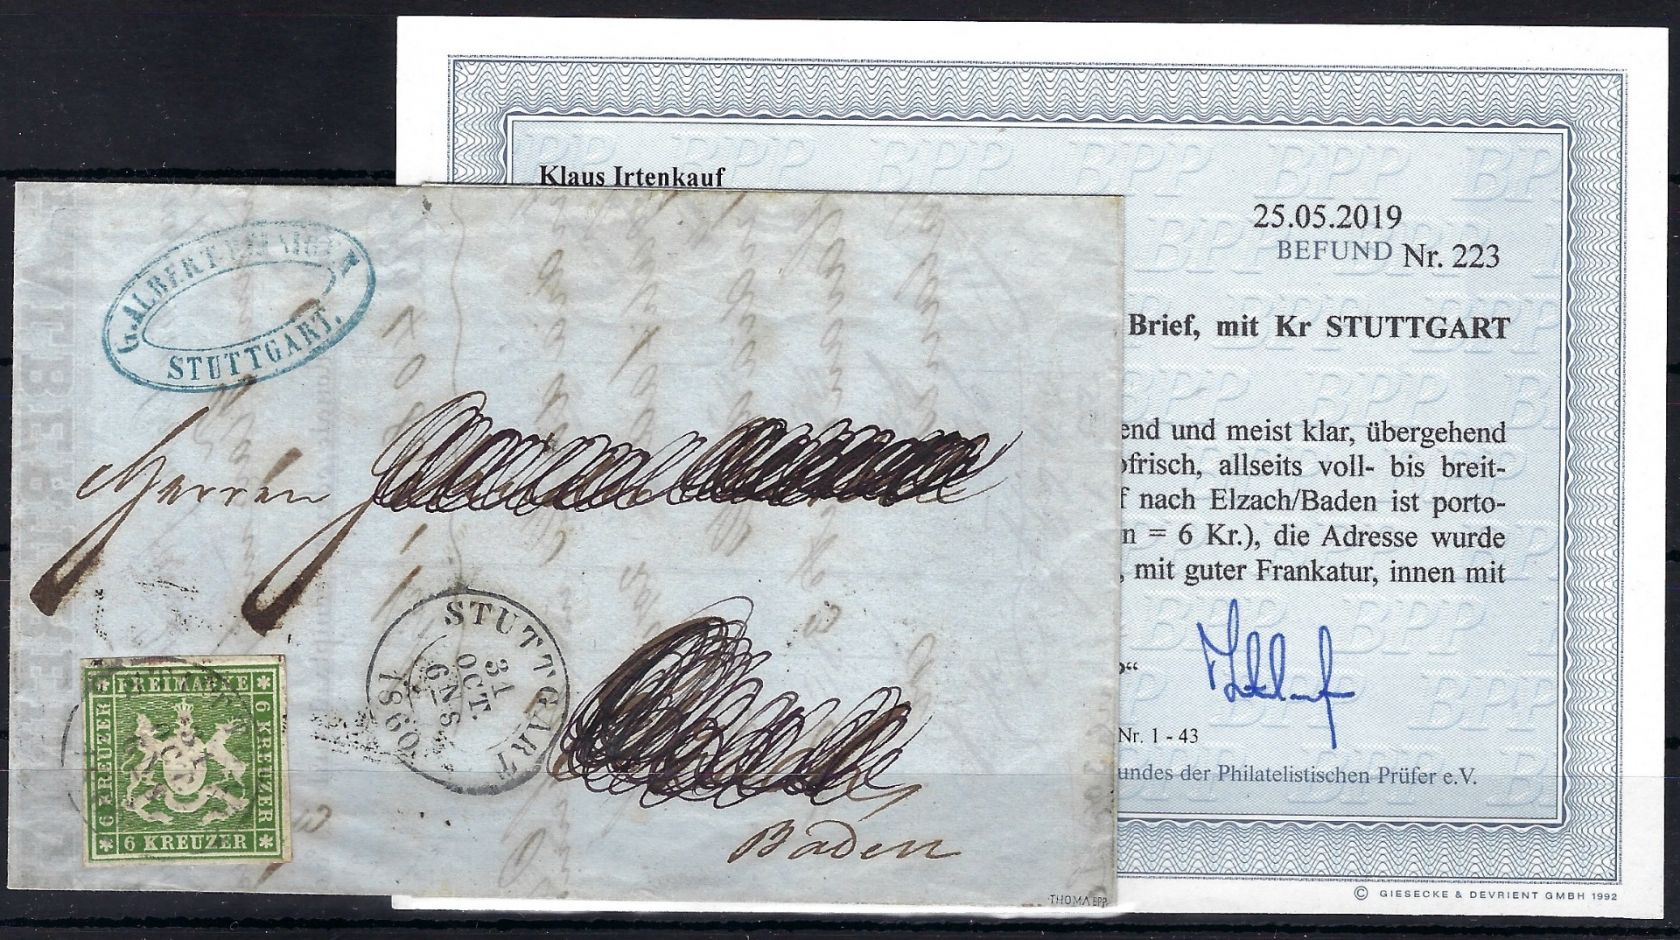 Klaus Irtenkauf
25.05.2019
BEFUND Nr. 223
Brief, mit Kr STUTTGART
end und meist klar, übergehend
ofrisch, allseits voll- bis breit-
f nach Elzach/Baden ist porto-
n = 6 Kr.), die Adresse wurde
, mit guter Frankatur, innen mit
P“
Nr. 1 - 43
undes der Philatelistischen Prüfer e.V.
© GIESECKE & DEVRIENT GMBH 1992
G. ALBERT
STUTTGART.
Herren
STUTTGART
31
OCT.
6 N 8
1860
FREIMARKE
6 KREUZER
6 KREUZER
6 KREUZER
Baden
THOMA BPP